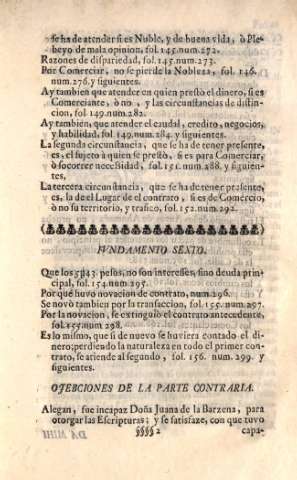 se ha de atender si es Noble, y de buena vida, ò Ple-
beyo de mala opinion, fol. 145. num. 272.
Razones de disparidad, fol. 145. num. 273.
Por Comerciar, no se pierde la Nobleza, fol. 146.
num. 276. y siguientes.
Ay tambien que atender en quien prestò el dinero, si es
Comerciante, ò no, y las circunstancias de distin-
cion, fol. 149. num. 282.
Ay tambien, que atender el caudal, credito, negocios,
y habilidad, fol. 149. num. 284. y siguientes.
La segunda circunstancia, que se ha de tener presente,
es, el sujeto à quien se prestò, si es para Comerciar,
ò socorrer necessidad, fol. 151. num. 288. y siguien-
tes,
La tercera circunstancia, que se ha de tener presente,
es, la de el Lugar de el contrato, si es de Comercio,
ò no su territorio, y trafico, fol. 152. num. 292.
FVNDAMENTO SEXTO.
Que los 5843. pesos, no son interesses, sino deuda prin-
cipal, fol. 154. num. 295.
Por què huvo novacion de contrato, num. 296.
Se novò tambien por la transaccion, fol. 155. num. 297.
Por la novacion, se extinguiò el contrato antecedente,
fol. 155. num 298.
Es lo mismo, que si de nuevo se huviera contado el di-
nero; perdiendo la naturaleza en todo el primer con-
trato, se atiende al segundo, fol. 156. num. 299. y
siguientes.
OJEBCIONES DE LA PARTE CONTRARIA.
Alegan, fue incapaz Doña Juana de la Barzena, para
otorgar las Escripturas; y se satisfaze, con que tuvo
§§§§ 2 capa-